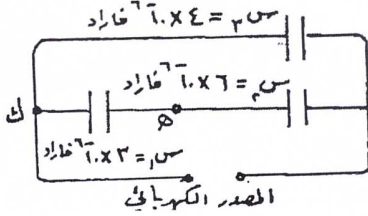 س٣ = ٤ × ١٠-٦ فاراد
س٢ = ٦ × ١٠-٦ فاراد
ك
هـ
س١ = ٣ × ١٠-٦ فاراد
المصدر الكهربائي